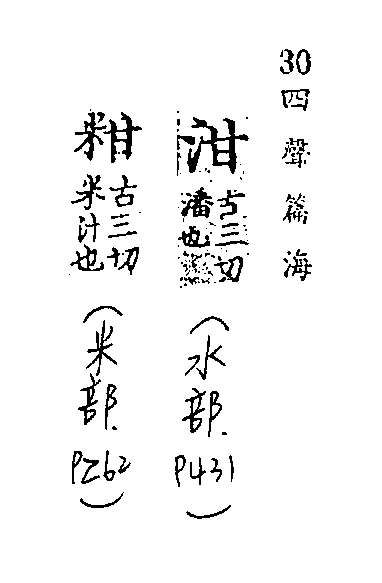 30四聲篇海
泔
古三切
潘也
（水部．P431）
粓
古三切
米汁也
（米部．P262）